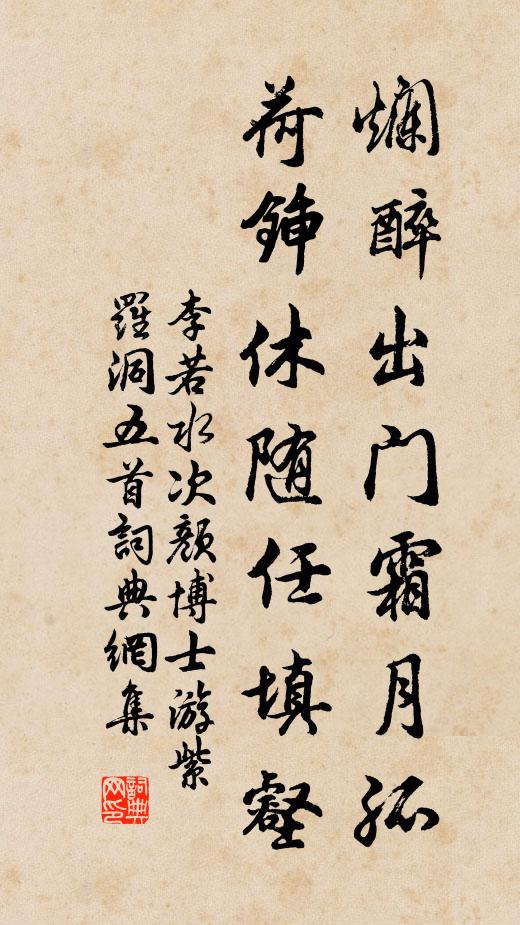 爛醉出门霜月孤
荷鍤休随任填壑
李若水次颜博士游紫
羅洞五首詞典網集
詞典网印